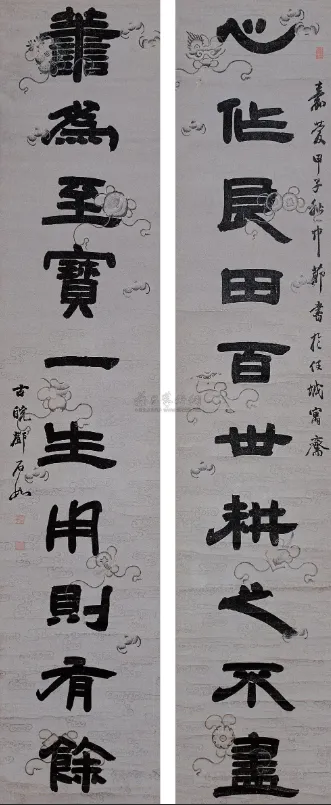 嘉慶甲子秋中節書於任城寓齋
心作良田百世耕之不盡
善為至寶一生用則有餘
古皖鄧石如